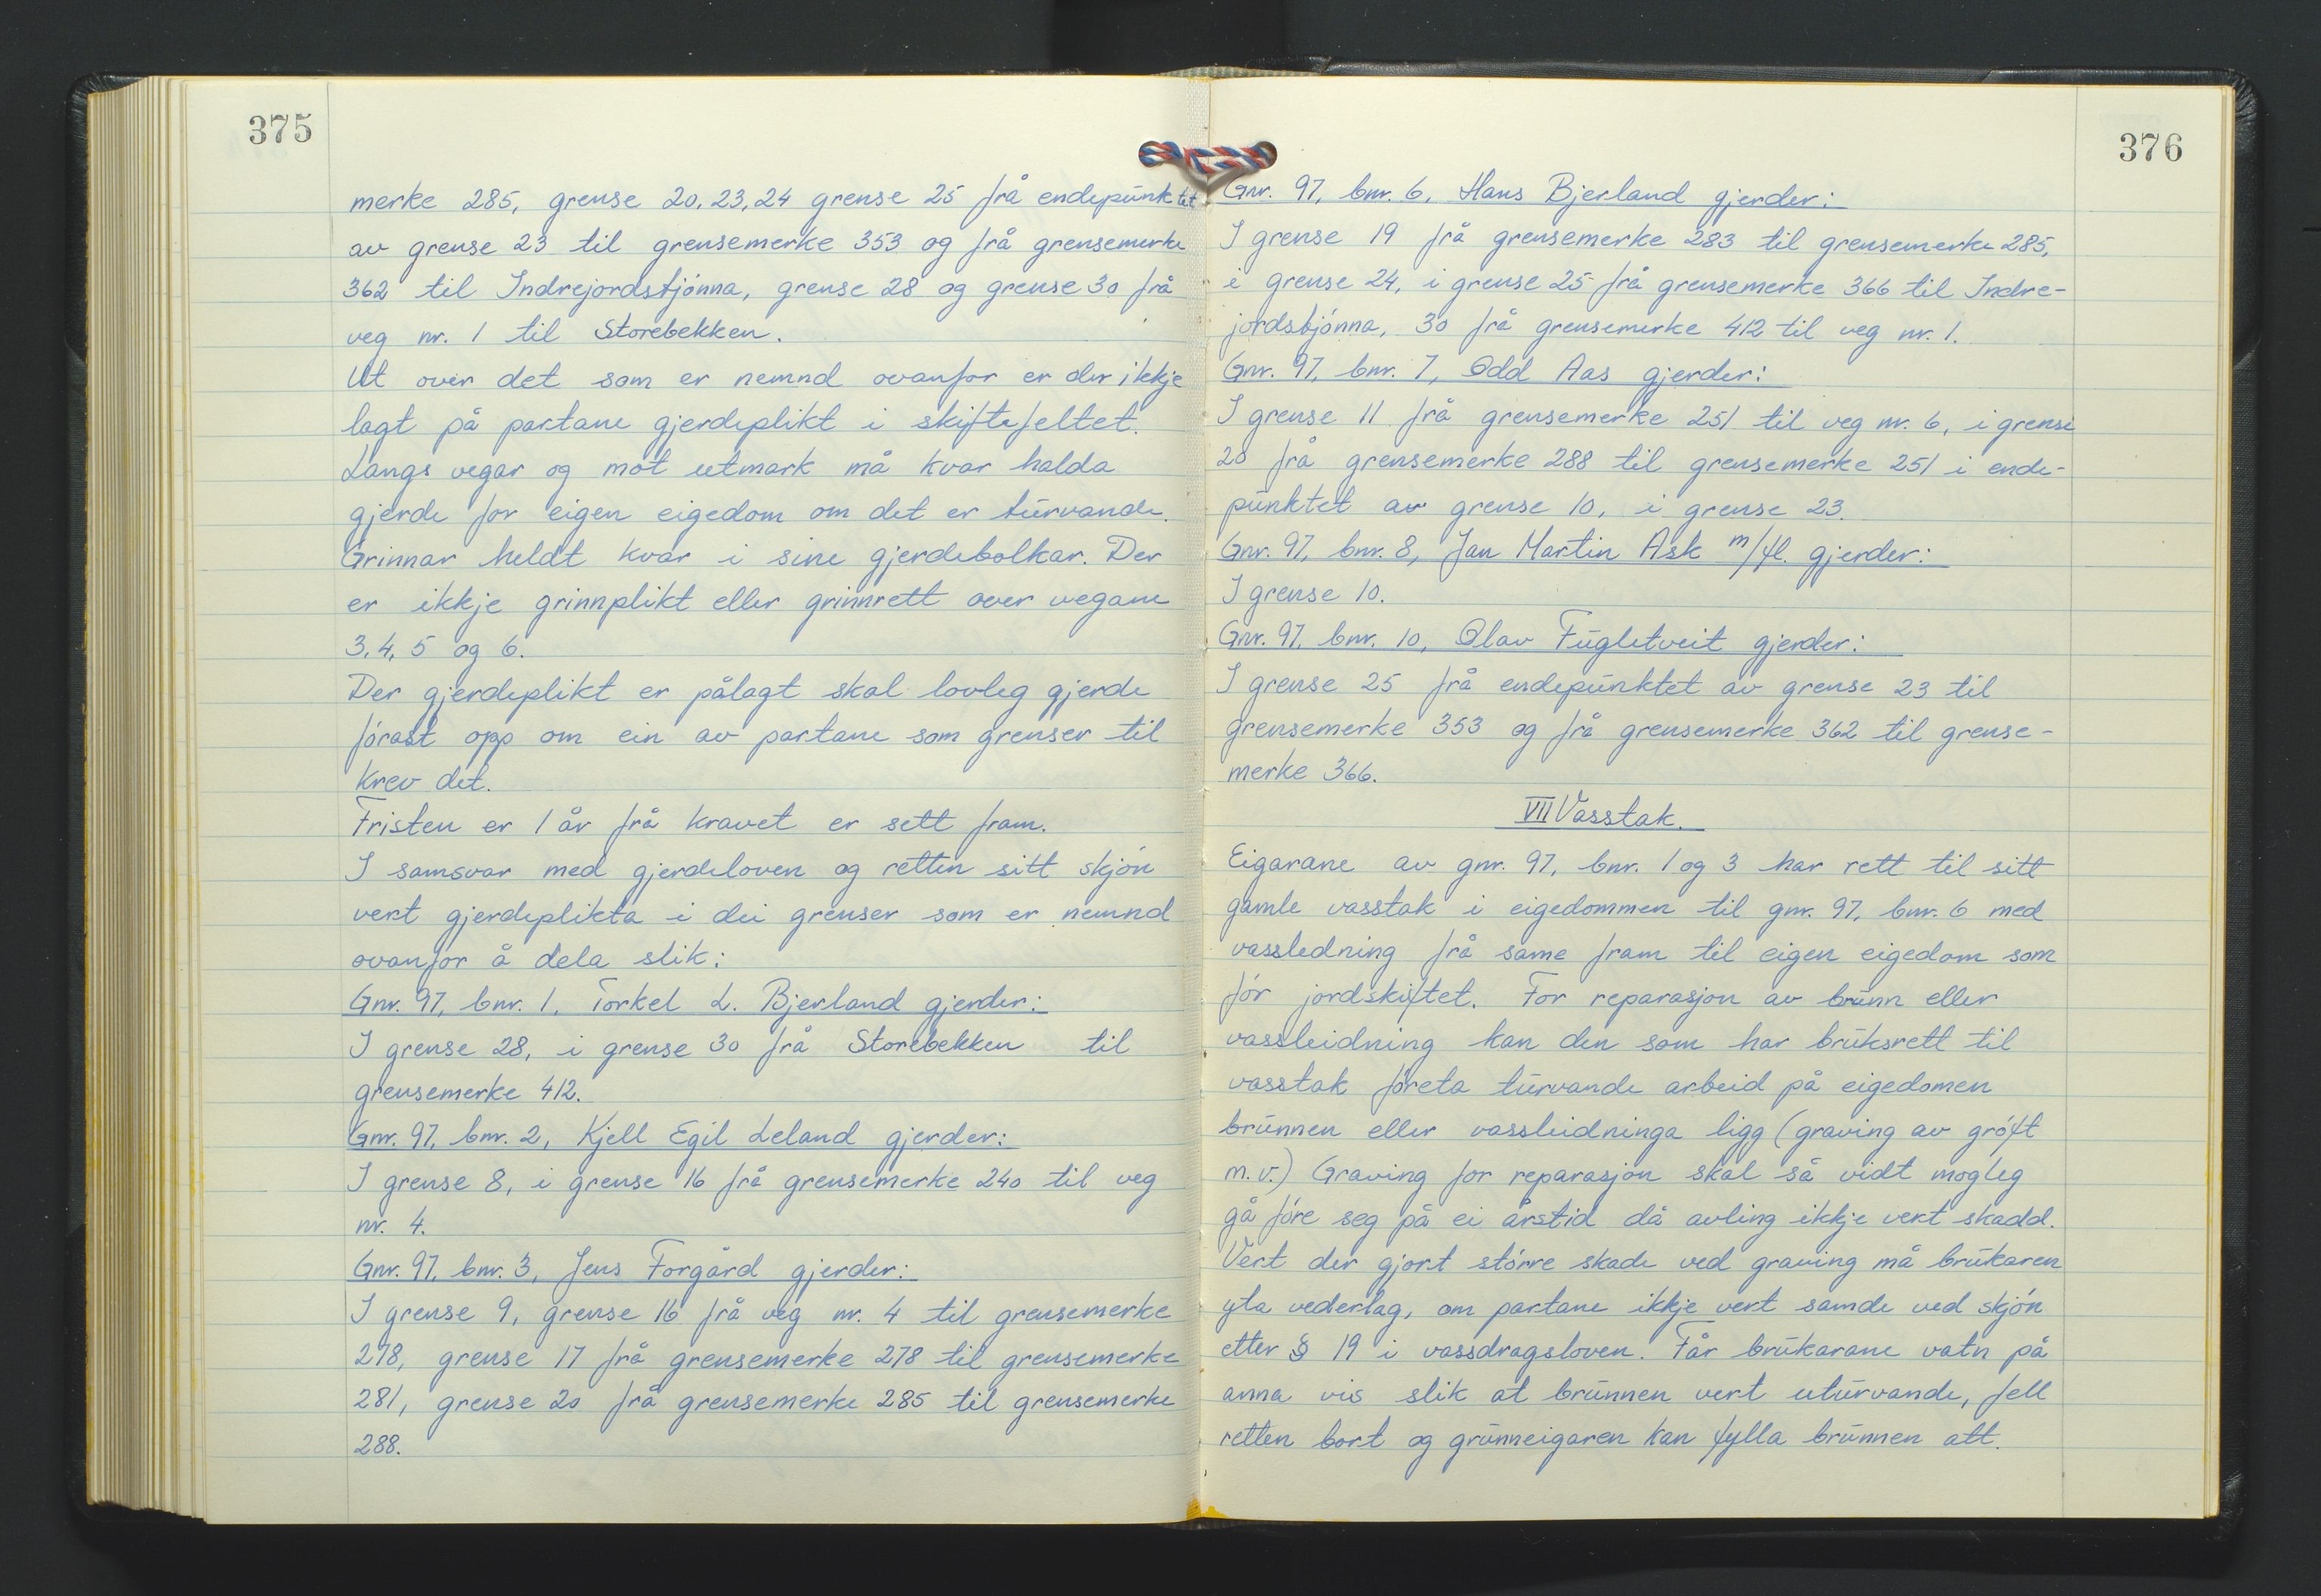 375
merke 285, grense 20, 23, 24 grense 25 frå endepunktet
av grense 23 til grensemerke 353 og frå grensemerke
362 til Indrejordstjónna, grense 28 og grense 30 frå
veg nr. 1 til Storebekken.
Ut over det som er nemnd ovanfor er der ikkje
lagt på partane gjerdeplikt i skiftefeltet.
Langs vegar og mot utmark må kvar halda
gjerde for eigen eigedom om det er turvande.
Grinnar heldt kvar i sine gjerdebolkar. Der
er ikkje grinnplikt eller grinnrett over vegane
3, 4, 5 og 6.
Der gjerdeplikt er pålagt skal lovleg gjerde
fórast opp om ein av partane som grenser til
krev det.
Fristen er 1 år frå kravet er sett fram.
I samsvar med gjerdeloven og retten sitt skjón
vert gjerdeplikta i dei grenser som er nemnd
ovanfor å dela slik:
Gnr. 97, bnr. 1, Torkel L. Bjerland gjerder:
I grense 28, i grense 30 frå Storebekken til
grensemerke 412.
Gnr. 97, bnr. 2, Kjell Egil Leland gjerder:
I grense 8, i grense 16 frå grensemerke 240 til veg
nr. 4.
Gnr. 97, bnr. 3, Jens Forgård gjerder:
I grense 9, grense 16 frå veg nr. 4 til grensemerke
278, grense 17 frå grensemerke 278 til grensemerke
281, grense 20 frå grensemerke 285 til grensemerke
288.
376
Gnr. 97, bnr. 6, Hans Bjerland gjerder:
I grense 19 frå grensemerke 283 til grensemerke 285,
i grense 24, i grense 25 frå grensemerke 366 til Indre-
jordstjónna, 30 frå grensemerke 412 til veg nr. 1.
Gnr. 97, bnr. 7, Odd Aas gjerder:
I grense 11 frå grensemerke 251 til veg nr. 6, i grense
20 frå grensemerke 288 til grensemerke 251 i ende-
punktet av grense 10, i grense 23.
Gnr. 97, bnr. 8, Jan Martin Ask m/fl. gjerder:
I grense 10.
Gnr. 97, bnr. 10, Olav Fugletveit gjerder:
I grense 25 frå endepunktet av grense 23 til
grensemerke 353 og frå grensemerke 362 til grense-
merke 366.
VII Vasstak.
Eigarane av gnr. 97, bnr. 1 og 3 har rett til sitt
gamle vasstak i eigedommen til gnr. 97, bnr. 6 med
vassledning frå same fram til eigen eigedom som
fór jordskiftet. For reparasjon av brunn eller
vassleidning kan den som har bruksrett til
vasstak fóreta turvande arbeid på eigedomen
brunnen eller vassleidninga ligg (graving av gróft
m.v.) Graving for reparasjon skal så vidt mogleg
gå fóre seg på ei årstid då avling ikkje vert skadd.
Vert der gjort stórre skade ved graving må brukaren
yta vederlag, om partane ikkje vert samde ved skjón
etter § 19 i vassdragsloven. Får brukarane vatn på
anna vis slik at brunnen vert uturvande, fell
retten bort og grunneigaren kan fylla brunnen att.